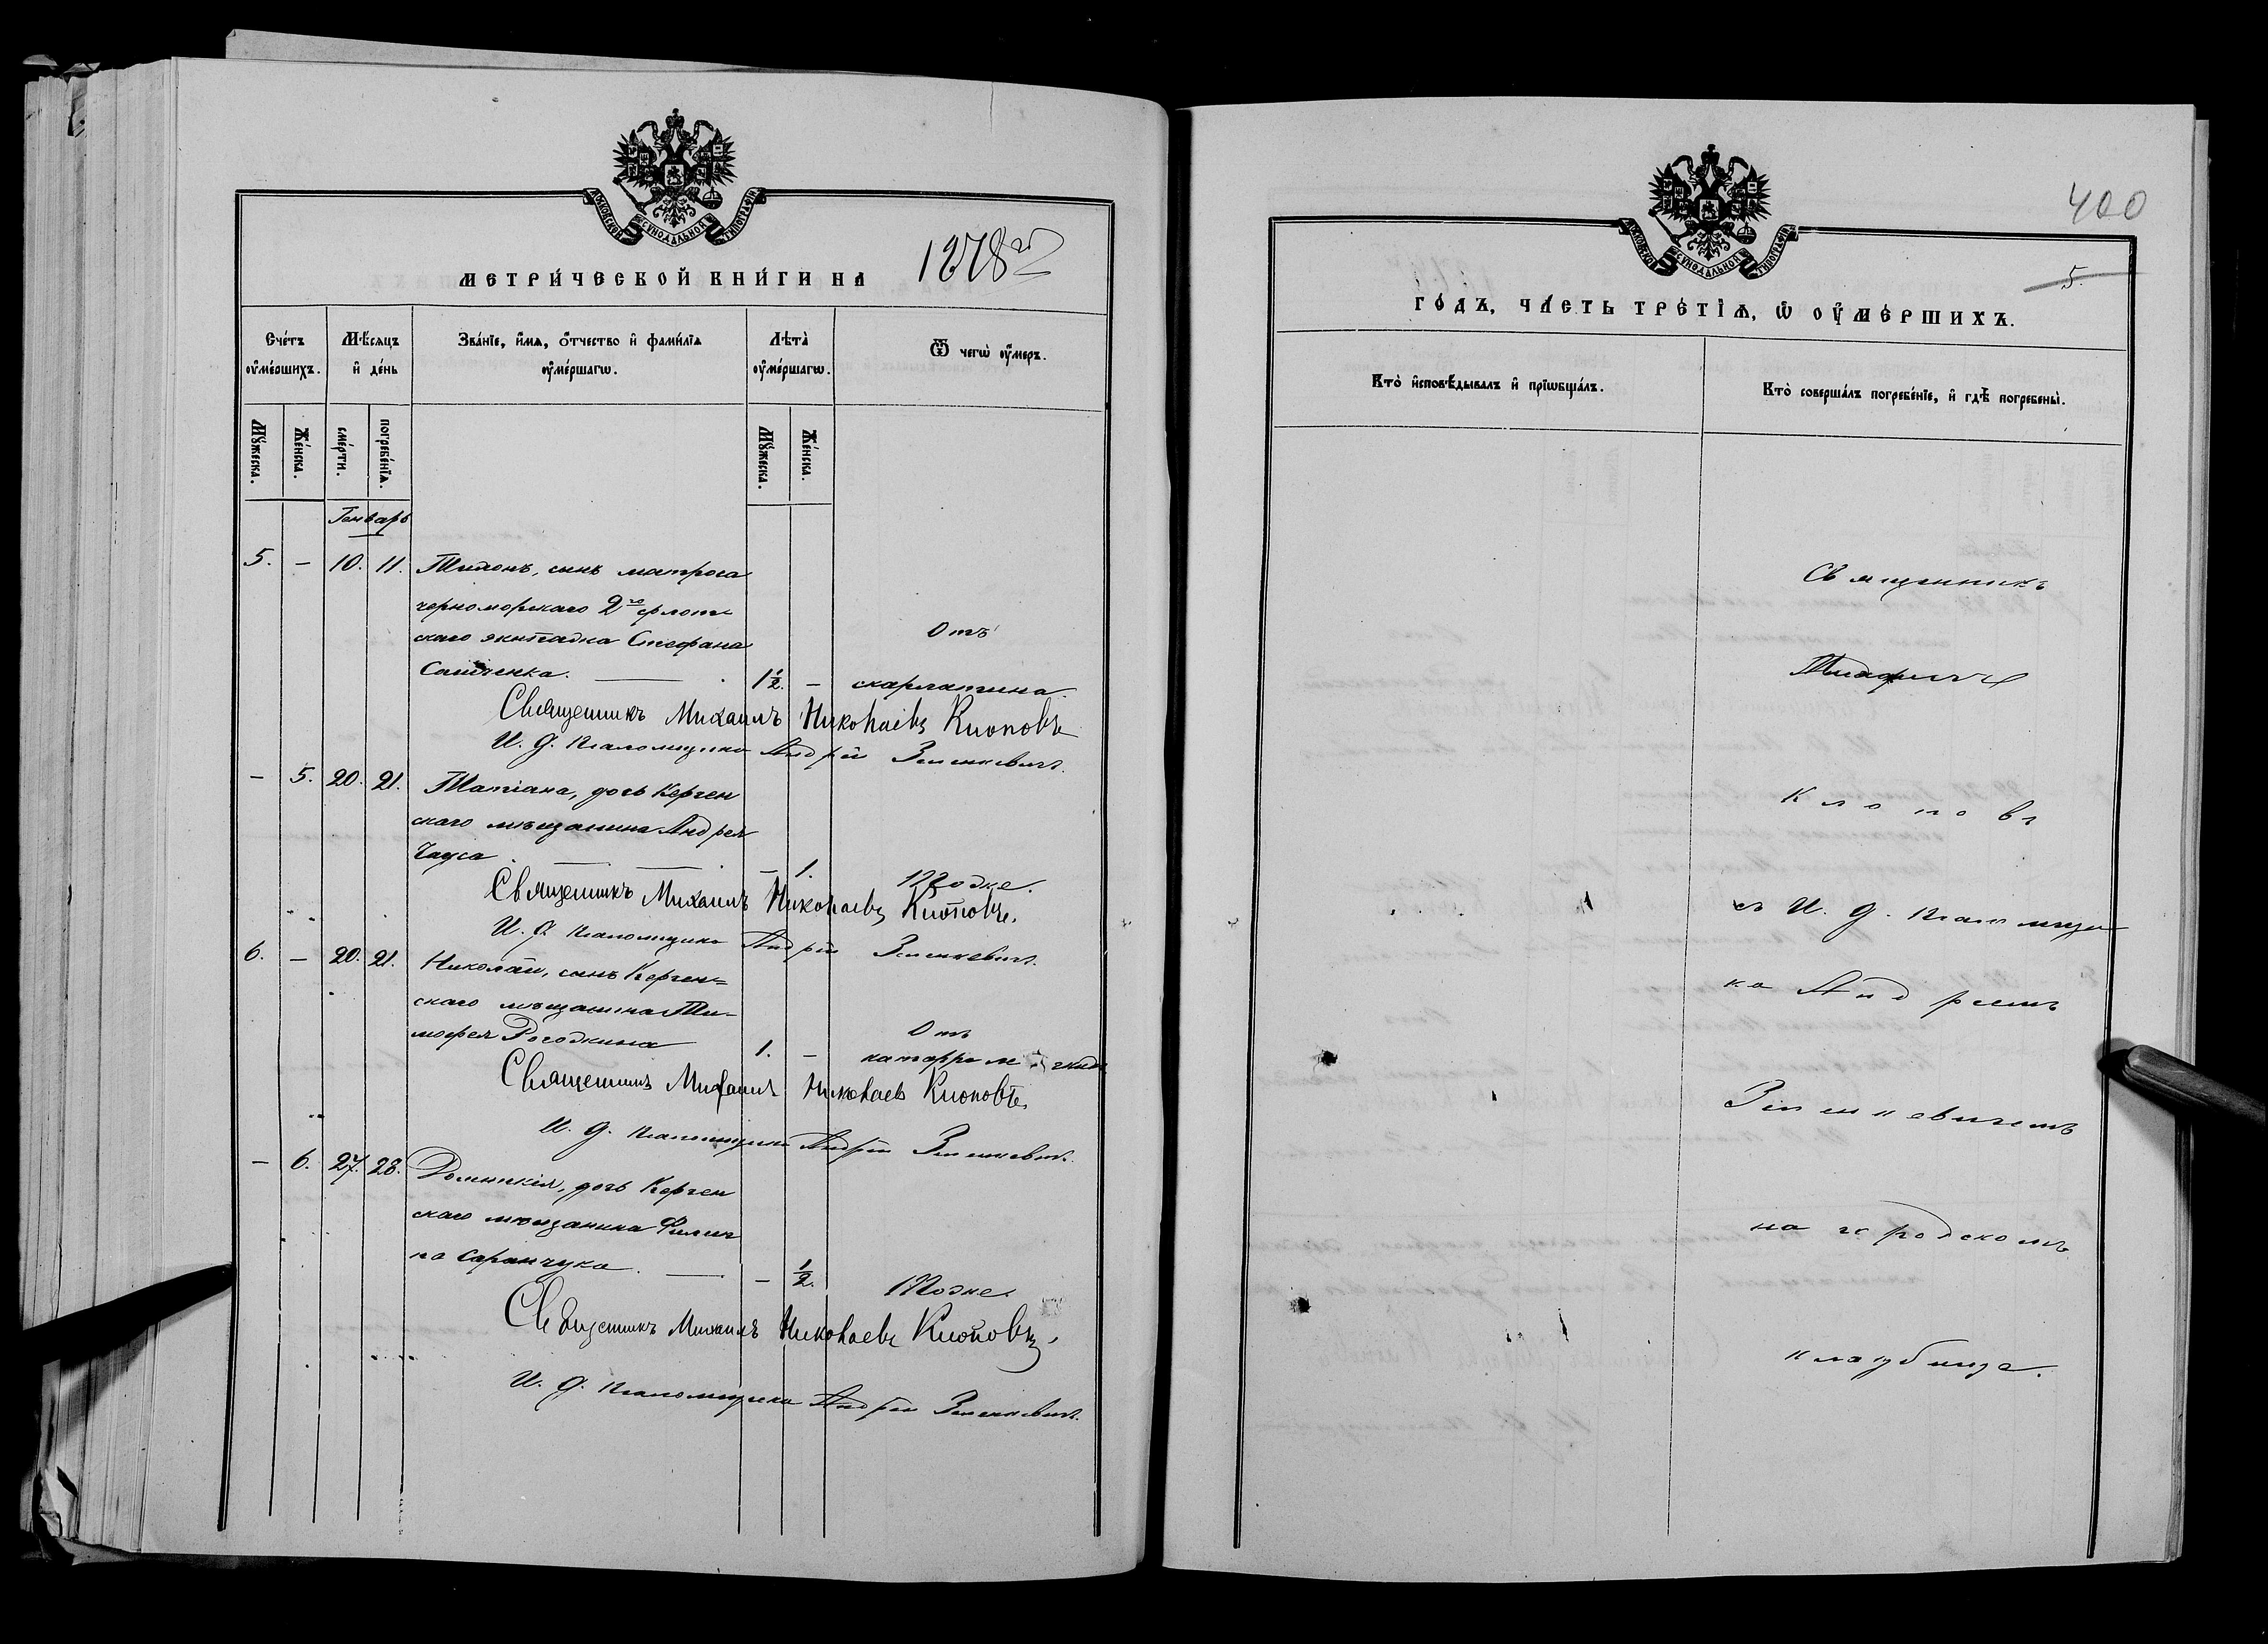 МОСКОВСКОЙ СѴНОДАЛЬНОЙ ТИПОГРАФІИ
МЕТРИ́ЧЕСКОЙ КНИ́ГИ НА 1878 го
Сче́тъ ᲂу҆ме́ршихъ.
Мѣ́сяцъ и҆ де́нь
Зва́нїе, и҆́мѧ, ѻ҆́тчество и҆ фами́лїѧ ᲂу҆ме́ршагѡ.
Лѣ́та ᲂу҆ме́ршагѡ.
Ѿ чегѡ̀ ᲂу҆́меръ.
Мꙋ́жеска.
Же́нска.
сме́рти.
погребе́нїѧ.
Мꙋ́жеска.
Же́нска.
Генварь
5. — 10. 11. сынъ матроса
черноморскаго 2го флот
скаго экипажа Стефана Отъ
1½. — скарлатина.
Священникъ Михаилъ Николаевъ Клоповъ
И. д. псаломщика Андрей Зеленкевичъ.
— 5. 20. 21. Татіана, дочь Керчен
скаго мѣщанина Андрея
Чауса — 1. Тоже.
Священникъ Михаилъ Николаевъ Клоповъ.
И. д. псаломщика Андрей Зеленкевичъ.
6. — 20. 21. Николай, сынъ Керчен=
скаго мѣщанина Ти-
мофея Рогодкина 1. — Отъ
катарра
Священникъ Михаилъ Николаевъ Клоповъ.
И. д. псаломщика Андрей Зеленкевичъ.
— 6. 27. 28. Домникія, дочь Керчен
скаго мѣщанина Филип
па Саранчука. — ½. Тоже.
Священникъ Михаилъ Николаевъ Клоповъ.
И. д. псаломщика Андрей Зеленкевичъ.
400
МОСКОВСКОЙ СѴНОДАЛЬНОЙ ТИПОГРАФІИ
5.
ГО́ДЪ, ЧА́СТЬ ТРЕ́ТІѦ, Ѡ҆ ОУ҆МЕ́РШИХЪ.
Кто̀ и҆сповѣ́дывалъ и҆ прїѡбща́лъ.
Кто̀ соверша́лъ погребе́нїе, и҆ гдѣ̀ погребены̀.
Священникъ
Михаилъ
Клоповъ
съ И. д. псаломщи
ка Андреемъ
Зеленкевичемъ
на городскомъ
кладбище.